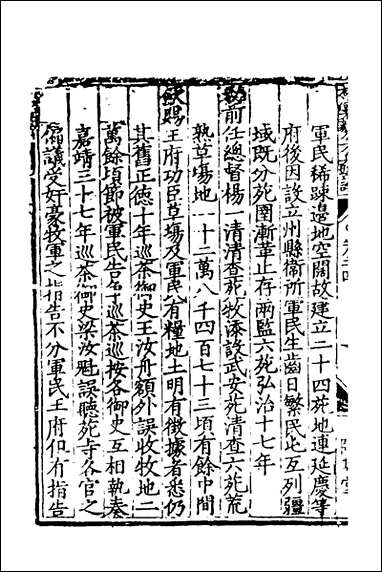 軍民稀踈邉地空闊故建立二十四苑地連延慶等
府後因設立州縣衛所軍民生齒日繁民屯互列疆
域既分苑圉漸革止存兩監六苑弘治十七年
勑前任總督楊一清清查苑牧添設武安苑清查六苑荒
熟草塲地一十二萬八千四百七十三頃有餘中間
欽賜王府功臣草塲及軍民有糧地土明有徵據者悉仍
其舊正德十年巡茶御史王汝舟額外誤收牧地二
萬餘頃節被軍民告爭巡茶巡按各御史互相執奏
嘉靖三十七年巡茶御史梁汝魁誤聽苑寺各官之
偏議受奸豪牧軍之指告不分軍民王府但有指告